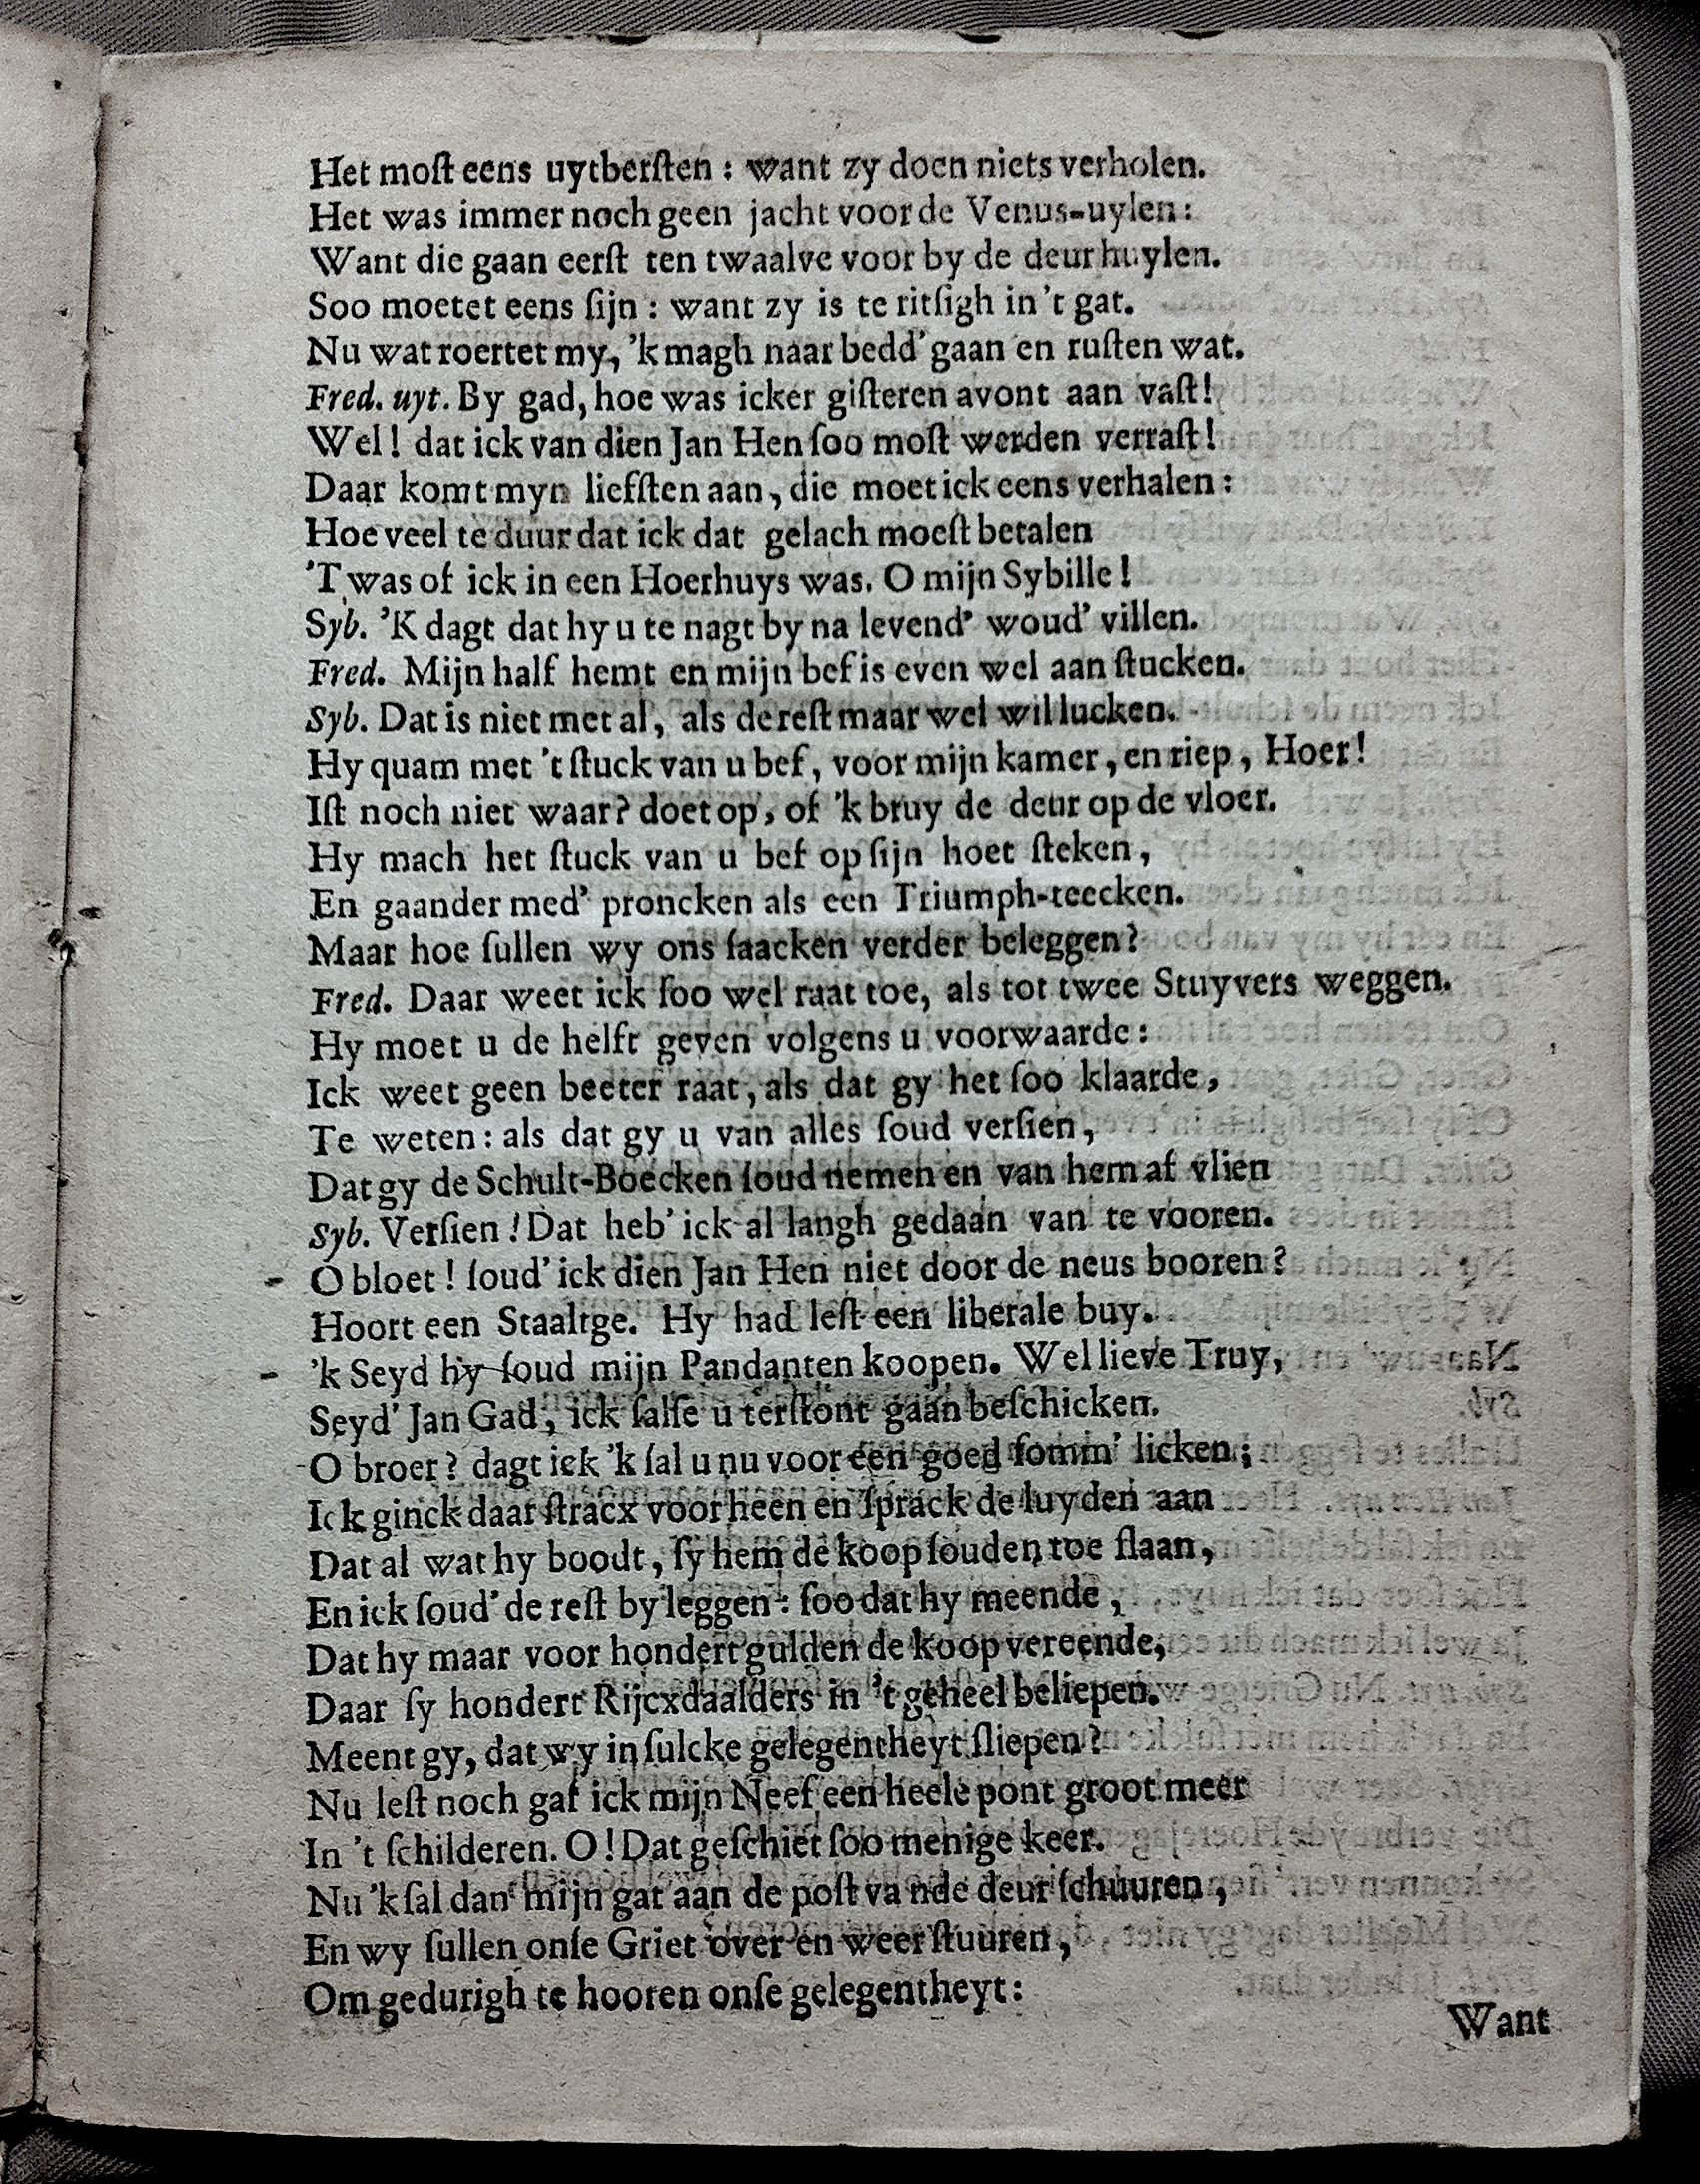 Het moſt eens uytberſten : want zy doen niets verholen.
Het was immer noch geen jacht voor de Venus-uylen:
Want die gaan eerſt ten twaalve voor by de deur huylen.
Soo moetet eens ſijn : want zy is te ritſigh in 't gat.
Nu wat roertet my, 'k magh naar bedd' gaan en ruſten wat.
Fred. uyt. By gad, hoe was icker giſteren avont aan vaſt!
Wel! dat ick van dien Jan Hen ſoo moſt werden verraſt!
Daar komt myn liefſten aan, die moet ick eens verhalen:
Hoe veel te duur dat ick dat gelach moeſt betalen
'T was of ick in een Hoerhuys was. O mijn Sybille!
Syb. 'K dagt dat hy u te nagt by na levend' woud' villen.
Fred. Mijn half hemt en mijn bef is even wel aan ſtucken.
Syb. Dat is niet met al, als de reſt maar wel wil lucken.
Hy quam met 't ſtuck van u bef, voor mijn kamer, en riep, Hoer!
Iſt noch niet waar? doet op, of 'k bruy de deur op de vloer.
Hy mach het ſtuck van u bef op ſijn hoet ſteken,
En gaander med' proncken als een Triumph-teecken.
Maar hoe ſullen wy ons ſaacken verder beleggen?
Fred. Daar weet ick ſoo wel raat toe, als tot twee Stuyvers weggen.
Hy moet u de helft geven volgens u voorwaarde:
Ick weet geen beeter raat, als dat gy het ſoo klaarde,
Te weten: als dat gy u van alles ſoud verſien,
Dat gy de Schult-Boecken ſoud nemen en van hem af vlien
Syb. Verſien! Dat heb' ick al langh gedaan van te vooren.
O bloet! ſoud' ick dien Jan Hen niet door de neus booren?
Hoort een Staaltge. Hy had leſt een liberale buy.
'k Seyd hy ſoud mijn Pandanten koopen. Wel lieve Truy,
Seyd' Jan Gad, ick ſalſe u terſtont gaan beſchicken.
O broer? dagt ick 'k ſal u nu voor een goed ſomm' licken;
Ick ginck daar ſtracx voor heen en ſprack de luyden aan
Dat al wat hy boodt, ſy hem de koop ſouden toe ſlaan,
En ick ſoud' de reſt by leggen : ſoo dat hy meende,
Dat hy maar voor hondert gulden de koop vereende,
Daar ſy hondert Rijcxdaalders in 't geheel beliepen.
Meent gy, dat wy in ſulcke gelegentheyt ſliepen?
Nu leſt noch gaf ick mijn Neef een heele pont groot meer
In 't ſchilderen. O! Dat geſchiet ſoo menige keer.
Nu 'k ſal dan mijn gat aan de poſt va nde deur ſchuuren,
En wy ſullen onſe Griet over en weer ſtuuren,
Om gedurigh te hooren onſe gelegentheyt:
Want